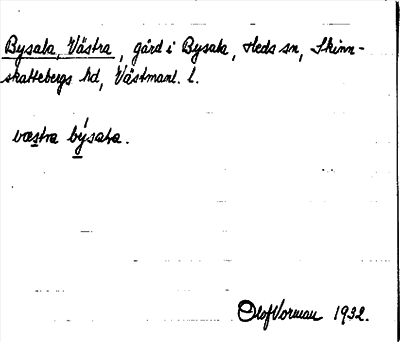 Bysala, Västra, gård i Bysala, Heds sn, Skinn-
skattebergs hd, Västmanl. l.
væstra býsala.
Olof Vorman 1932.